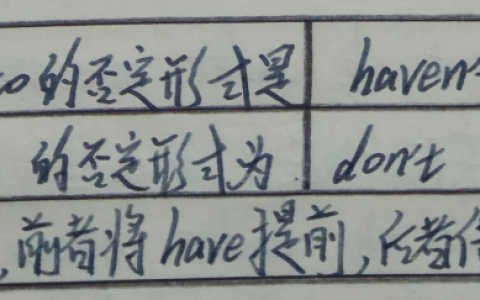 的否定形式是 haven't
的否定形式为 don't
,前者将have提前,后者